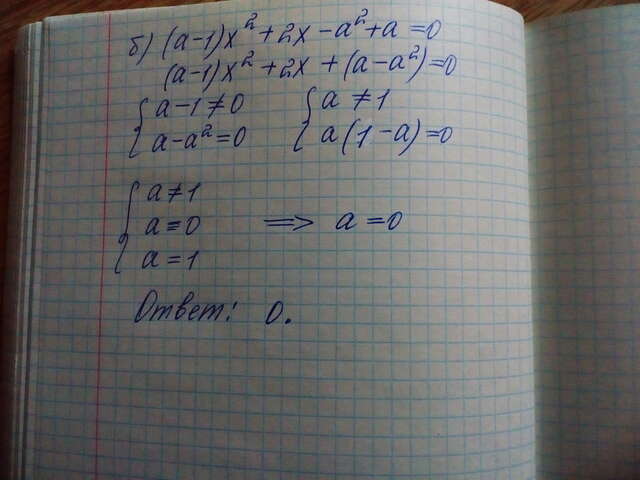 б) (a-1)x² + 2x - a² + a = 0
(a-1)x² + 2x + (a-a²) = 0
{ a-1 ≠ 0 { a ≠ 1
a-a² = 0 a(1-a) = 0
{ a ≠ 1
a = 0 => a = 0
a = 1
Ответ: 0.